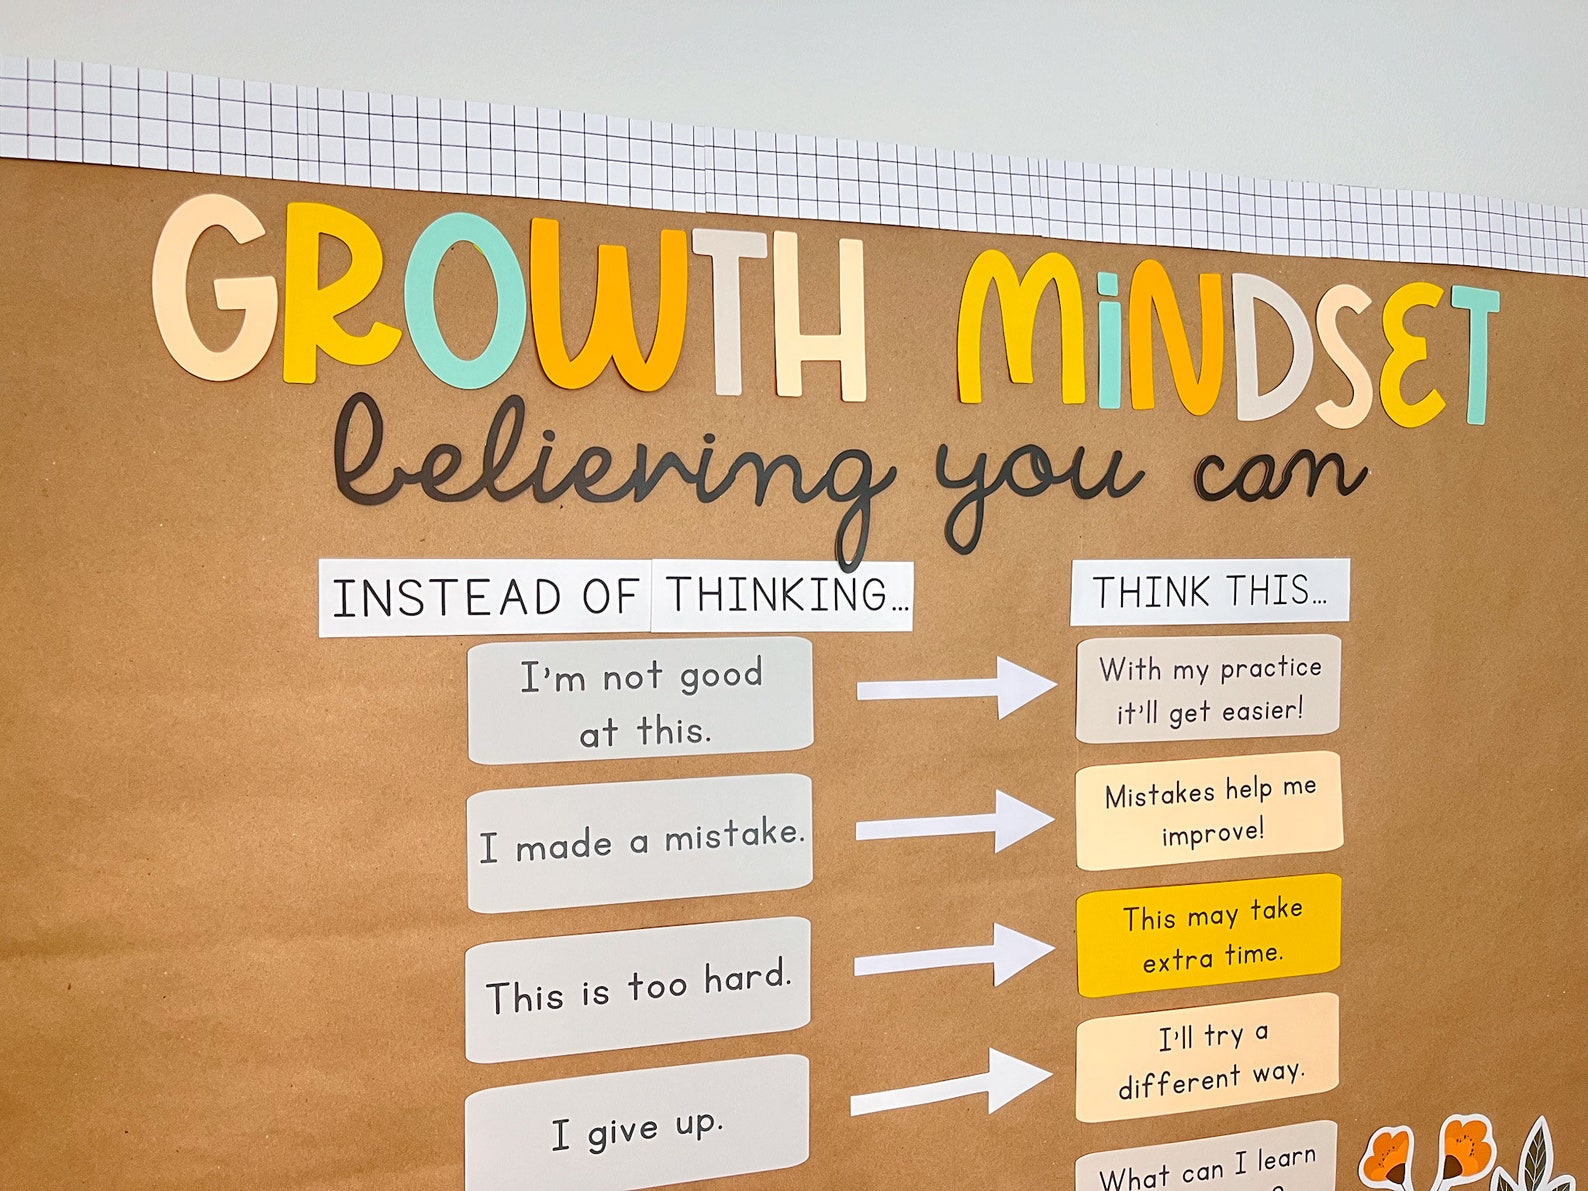 GROWTH MiNDSET
believing you can
INSTEAD OF THINKING...
THINK THIS...
I'm not good
at this.
With my practice
it'll get easier!
I made a mistake.
Mistakes help me
improve!
This is too hard.
This may take
extra time.
I give up.
I'll try a
different way.
What can I learn